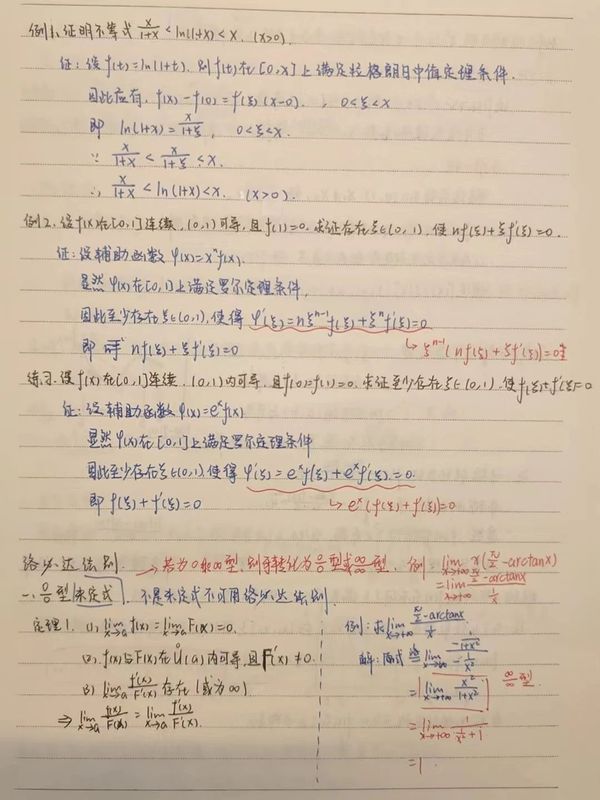 例1、证明不等式 x/(1+x) < ln(1+x) < x. (x>0).
证: 设 f(t)=ln(1+t). 则 f(t)在[0,x]上满足拉格朗日中值定理条件.
因此应有, f(x)-f(0)=f'(ξ)(x-0)., 0<ξ<x
即 ln(1+x)=x/(1+ξ), 0<ξ<x.
∵ x/(1+x) < x/(1+ξ) < x.
∴ x/(1+x) < ln(1+x) < x. (x>0).
例2. 设f(x)在[0,1]连续, (0,1)可导, 且f(1)=0. 求证存在ξ∈(0,1), 使 nf(ξ)+ξf'(ξ)=0.
证: 设辅助函数 φ(x)=xⁿf(x).
显然 φ(x)在[0,1]上满足罗尔定理条件,
因此至少存在ξ∈(0,1), 使得 φ'(ξ)=nξⁿ⁻¹f(ξ)+ξⁿf'(ξ)=0
即 nf(ξ)+ξf'(ξ)=0
↳ ξⁿ⁻¹(nf(ξ)+ξf'(ξ))=0
练习. 设f(x)在[0,1]连续, (0,1)内可导, 且f(0)=f(1)=0. 求证至少存在ξ∈(0,1), 使f(ξ)+f'(ξ)=0
证: 设辅助函数φ(x)=eˣf(x)
显然 φ(x)在[0,1]上满足罗尔定理条件
因此至少存在ξ∈(0,1), 使得 φ'(ξ)=eˣf(ξ)+eˣf'(ξ)=0.
即 f(ξ)+f'(ξ)=0
↳ eˣ(f(ξ)+f'(ξ))=0
洛必达法则. → 若为0·∞型, 则手转化为0/0型或∞/∞型. 例: lim x→+∞ x(π/2-arctanx)
= lim x→+∞ (π/2-arctanx)/(1/x)
一、0/0型 未定式. 不是未定式不可用洛必达法则.
定理1. (1) lim x→a f(x)=lim x→a F(x)=0.
(2). f(x)与F(x)在Ů(a)内可导, 且F'(x)≠0.
(3) lim x→a f'(x)/F'(x) 存在(或为∞)
⇒ lim x→a f(x)/F(x) = lim x→a f'(x)/F'(x).
例: 求 lim x→+∞ (π/2-arctanx)/(1/x)
解: 原式 = lim x→+∞ (-1/(1+x²))/(-1/x²)
= lim x→+∞ x²/(1+x²) ∞/∞型.
= lim x→+∞ 1/(1/x²+1)
=1.